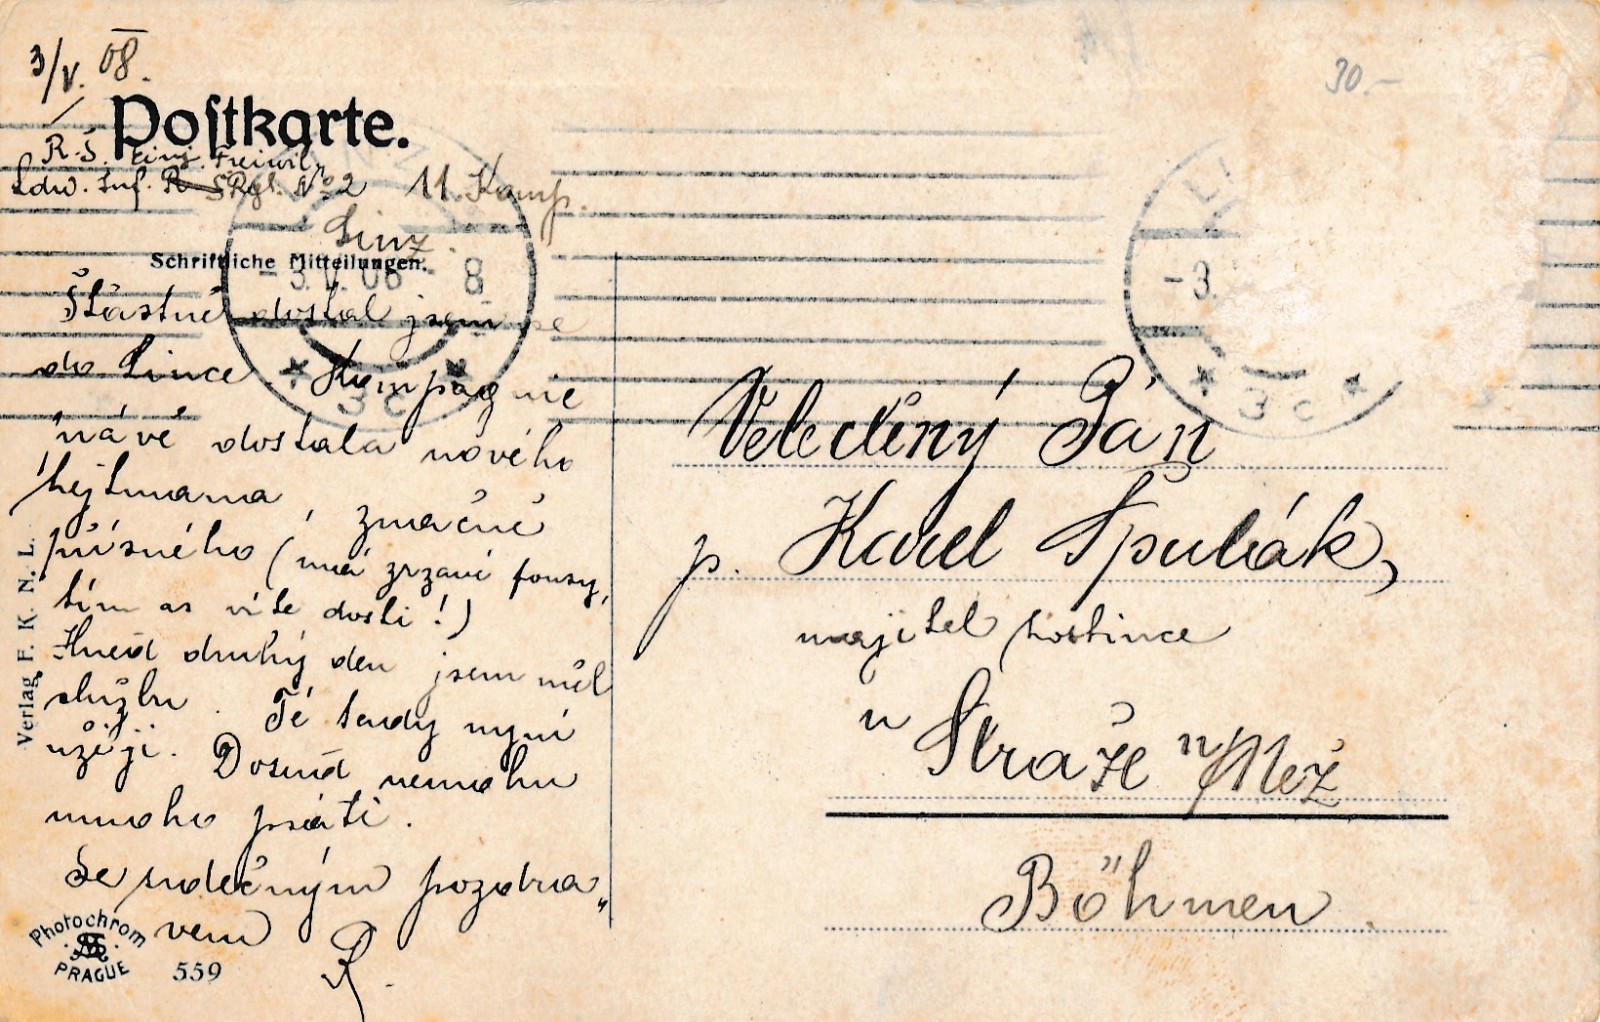 3/V. 08.
30.-
Postkarte.
R. Š. Einj. Freiwil.
Ldw. Inf. Rgt. No 2 11. Komp.
Linz.
Schriftliche Mitteilungen.
-3.V.08-8
-3.
3c
3c
Šťastně dostal jsem se
do Lince. Kumpagnie
dostala nového
hejtmana, značně
přísného (má zrzavé fousy,
tím as víte dosti!)
Hned druhý den jsem měl
službu. Té tendy nyní
užěji. Dosud nemohu
mnoho psáti.
Se srdečným pozdra„
vem R.
Velectěný Pán
p. Karel Špulák,
majitel hostince
v Stráži n/Než
Böhmen.
Verlag F. K. N. L.
Photochrom
PRAGUE
559